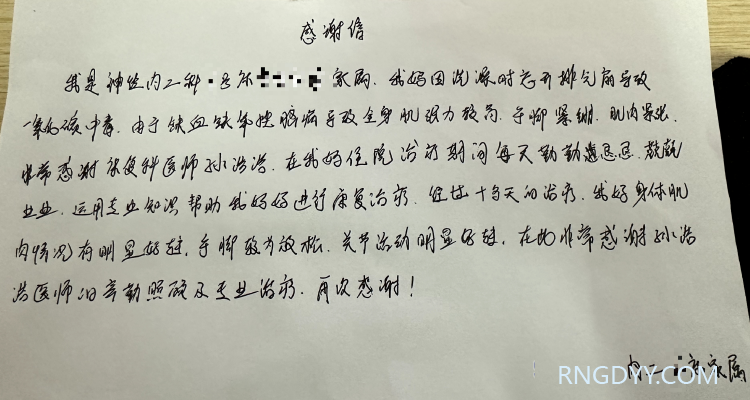 感谢信
我是神经内二科 家属.我妈因洗澡时忘开排气扇导致
一氧化碳中毒.由于缺血缺氧性脑病导致全身肌张力较高.手脚紧绷.肌肉紧张.
非常感谢康复科医师孙浩浩.在我妈住院治疗期间每天勤勤恳恳.兢兢
业业.运用专业知识帮助我妈妈进行康复治疗.经过十多天的治疗.我妈身体肌
肉情况有明显好转,手脚较为放松.关节活动明显好转.在此非常感谢孙浩
浩医师的辛勤照顾及专业治疗.再次感谢!
内二 家属
RNGDYY.COM